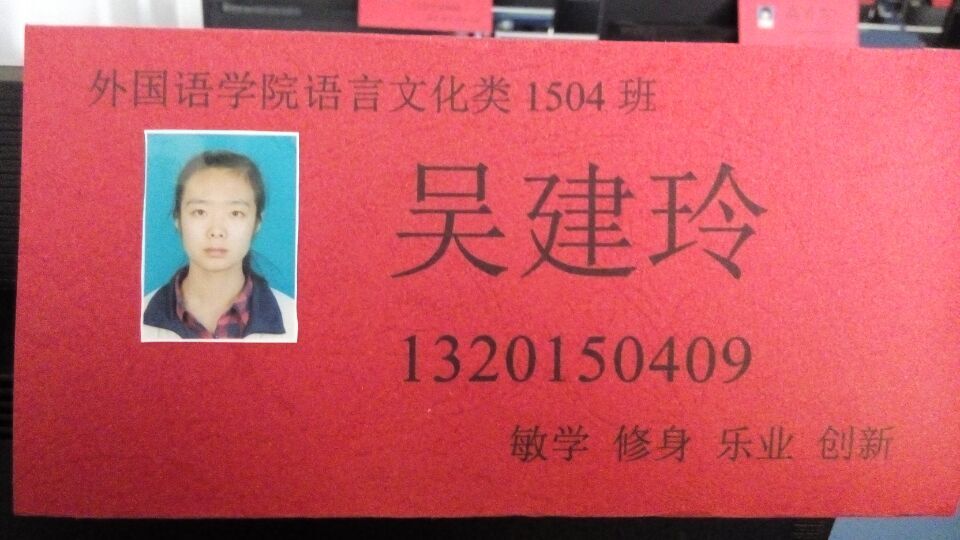 外国语学院语言文化类1504班
吴建玲
1320150409
敏学 修身 乐业 创新